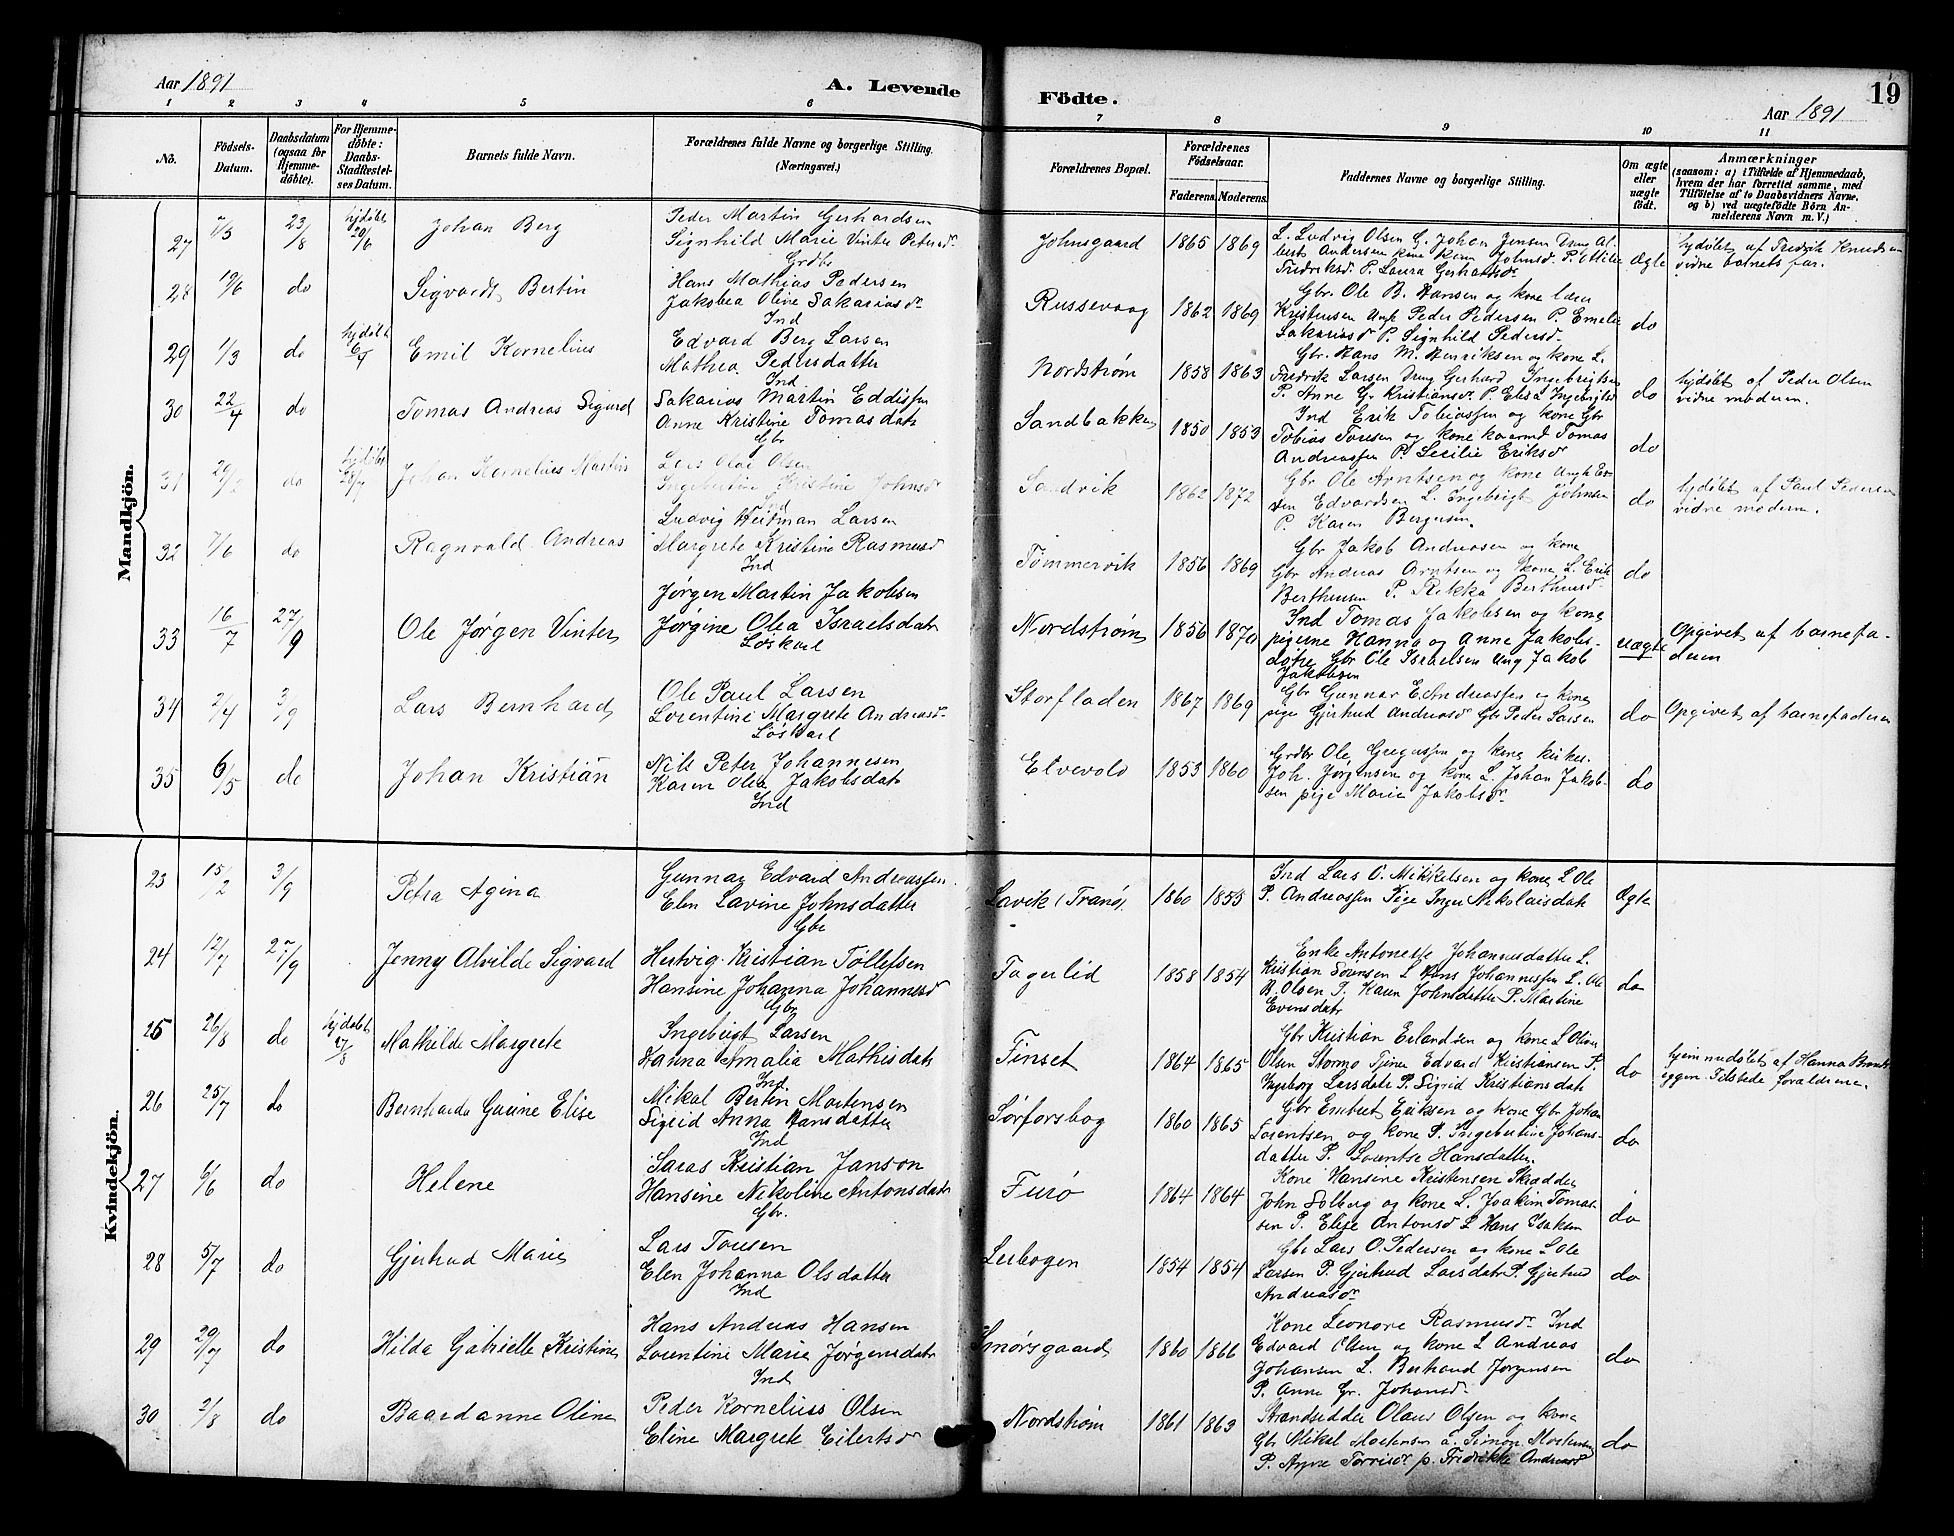 Aar 1891
A. Levende
Födte.
Aar 1891
19
1 2 3 4 5 6 7 8 9 10 11
No.
Födsels-Datum.
Daabsdatum (ogsaa for Hjemmedöbte).
For Hjemmedöbte: Daabs-Stadfæstelses Datum.
Barnets fulde Navn.
Forældrenes fulde Navne og borgerlige Stilling. (Næringsvei.)
Forældrenes Bopæl.
Forældrenes Födselsaar.
Faderens. Moderens.
Faddernes Navne og borgerlige Stilling.
Om ægte eller uægte födt.
Anmærkninger
(saasom: a) i Tilfælde af Hjemmedaab, hvem der har forrettet samme, med Tilföielse af to Daabsvidners Navne. og b) ved uægtefödte Börn Anmelderens Navn m. V.)
Mandkjön.
27 7/3 23/8 hjdøbt 20/6 Johan Berg
Peder Martin Gerhardsen
Signhild Marie Vinter Petersd.
Grdbr
Johnsgaard 1865 1869
L. Ludvig Olsen G. Johan Jensen Dreng Albert Andersen kone Johnsd. P. Ottilie
Fredriksd. P. Laura
ægte
hjdøbt af Fredrik Knudsen
vidne barnets far.
28 19/6 do Sigvardt Bertin
Hans Mathias Pedersen
Jakobea Olive Sakariasdr
Ind
Russevaag 1862 1869
Gbr. Ole B. Hansen og kone
Kristensen Ungk Peder Pedersen P. Emelie
Sakariasd P. Signhild Pedersd.
do
29 1/3 do hjdøbt Emil Kornelius
Edvard Berg Larsen
Mathea Pedersdatter
Ind
Nordstrøm 1858 1863
Gbr. Hans M. Henriksen og kone L.
Fredrik Larsen Dreng Gerhard Ingebrigtsen
P. Anne G. Kristiansdr P. Elisa Ingebrigtsd
do
hjdøbt af Peder Olsen
vidne moderen.
30 22/4 do Tomas Andreas Sigurd
Sakarias Martin Eddissen
Anne Kristine Tomasdatr
Gbr
Sandbakken 1850 1853
Ind Erik Tobiassen og kone Gbr
Tobias Toresen og kone Tomas
Andreassen P. Secilie Eriksd
do
31 29/2 do hjdøbt Johan Kornelius Martin
Lars Olai Olsen
Ingebertine Kristine Johnsd
Ind
Sandvik 1862 1872
Gbr Ole Arntsen og kone Ungk
Edvardsen L. Ingebrigt Johnsen
P. Karen Bergersen.
do
hjdøbt af Paul Pedersen
vidne moderen.
32 7/6 do Ragnvald Andreas
Ludvig Heitman Larsen
Margrete Kristine Rasmusd
Ind
Tømmervik 1856 1869
Gbr Jakob Andreasen og kone
Gbr Andreas Arntsen og kone L. Erik
Bertheusen P. Rikka Bertheusd.
do
33 16/7 27/9 Ole Jørgen Vinter
Jørgen Martin Jakobsen
Jørgine Olea Israelsdatr
Løskarl
Nordstrøm 1856 1870
Ind Tomas Jakobsen og kone
pigerne Hanna og Anne Jakobsdøtre Gbr Ole Israelsen Ung Jakob
Jakobsen
uægte
Opgivet af barnefaderen
34 2/4 3/9 Lars Bernhard
Ole Paul Larsen
Lorentine Margrete Andreasd.
Løskarl
Storfladen 1867 1869
Gbr Gunnar E. Andreassen og kone
pige Gjertrud Andreasd Gbr Peder Larsen
do
Opgivet af barnefaderen
35 6/5 do Johan Kristian
Nils Peter Johannesen
Karen Olea Jakobsdatr
Ind
Elvevold 1853 1860
Grdbr Ole Gregussen og kone kirkes.
Joh. Jørgensen og kone L. Johan Jakobsen pige Marie Jakobsdr
do
Kvindekjön.
23 15/2 3/9 Petra Agina
Gunnar Edvard Andreassen
Elen Lavine Johnsdatter
Gbr
Lavik (Tranø) 1860 1855
Ind Lars O. Mikkelsen og kone L Ole
P. Andreassen Pige Inger Nikolaisdatr
Ægte
24 12/7 27/9 Jenny Alvilde Sigvard
Hertvig Kristian Tollefsen
Hansine Johanna Johannesd
Gbr
Fagerlid 1858 1854
Enke Antonette Johannesdatter L.
Kristian Sørensen L Hans Johannessen L. Ole
B. Olsen P. Karen Johnsdatter P. Martine
Evensdatr
do
25 26/8 do hjdøbt 27/8 Mathilde Margrete
Ingebrigt Larsen
Hanna Amalia Mathisdatr
Ind.
Finset 1864 1865
Gbr Kristian Erlandsen og kone L Oliver
Olsen Stormo Tjener Edvard Kristiansen P.
Ingeborg Larsdatr P. Sigrid Kristiansdatr
do
hjemmedøbt af Hanna
Tilstede forældrene.
26 25/7 do Bernharda Gurine Elise
Mikal Berten Mortensen
Sigrid Anna Hansdatter
Ind
Sørforsbog 1860 1865
Gbr Embret Eriksen og kone Gbr Johan
Lorentsen og kone P. Ingebertine Johansdatter P. Lorentse Hansdatter.
do
27 6/6 do Helene
Saras Kristian Janson
Hansine Nikoline Antonsdatr
Gbr.
Furø 1864 1864
Kone Hansine Kristensen Skrædder
John Solberg og kone L. Joakim Tomassen P. Elise Antonsd L Hans Isaksen
do
28 5/7 do Gjertrud Marie
Lars Toresen
Elen Johanna Olsdatter
Ind
Leibogen 1854 1854
Gbr Lars O. Pedersen og kone L Ole
Larsen P. Gjertrud Larsdatr P. Gjertrud
Andreasdr
do
29 29/7 do Hilda Gabrielle Kristine
Hans Andreas Hansen
Lorentine Marie Jørgensdatr
Ind
Smørsgaard 1860 1866
Kone Leonore Rasmusdr Ind
Edvard Olsen og kone L Andreas
Johansen L. Bertrand Jørgensen
P. Anne Gr. Johansd.
do
30 2/8 do Baardanne Oline
Peder Kornelius Olsen
Eline Margrete Eilertsdr
Nordstrøm 1861 1863
Strandsidder Olaus Olsen og kone
Gbr Mikal Mortensen L. Simon Mortensen
P. Torrisdr p. Fredrikke Andreasd
do